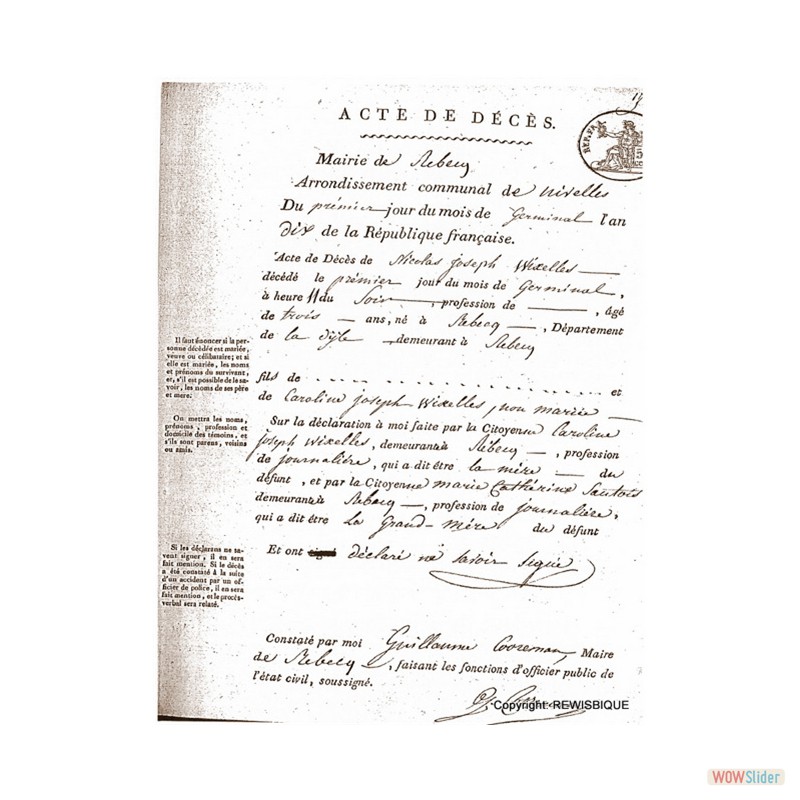 ACTE DE DÉCÈS.
REP. FRA
Mairie de Rebecq
Arrondissement communal de nivelles
Du prémier jour du mois de Germinal l'an
dix de la République française.
Acte de Décès de Nicolas joseph Wixelles
décédé le prémier jour du mois de Germinal,
à heure 11 du Soir, profession de , âgé
de trois ans, né à Rebecq, Département
de la dÿle, demeurant à Rebecq
Il faut énoncer si la per-
sonne décédée est mariée,
veuve ou célibataire; et si
elle est mariée, les noms
et prénoms du survivant,
et, s'il est possible de le sa-
voir, les noms de ses père
et mere.
fils de . . . . . . . . . . . . . . . . . . . . et
de Caroline joseph Wixelles, non mariée
On mettra les noms,
prénoms, profession et
domicile des témoins, et
s'ils sont parens, voisins
ou amis.
Sur la déclaration à moi faite par la Citoyenne Caroline
joseph Wixelles, demeurant à Rébecq, profession
de journalière, qui a dit être la mère du
défunt, et par la Citoyenne marie Cathérine Sautois
demeurant à Rebecq, profession de journalière,
qui a dit être la Grand-mére du défunt
Si les déclarans ne sa-
vent signer, il en sera
fait mention. Si le décès
a été constaté à la suite
d'un accident par un of-
ficier de police, il en sera
fait mention, et le procès-
verbal sera relaté.
Et ont signé déclaré ne savoir signé
Constaté par moi Guillaume Cooreman, Maire
de Rebecq, faisant les fonctions d'officier public de
l'état civil, soussigné.
Copyright: REWISBIQUE
WOWSlider